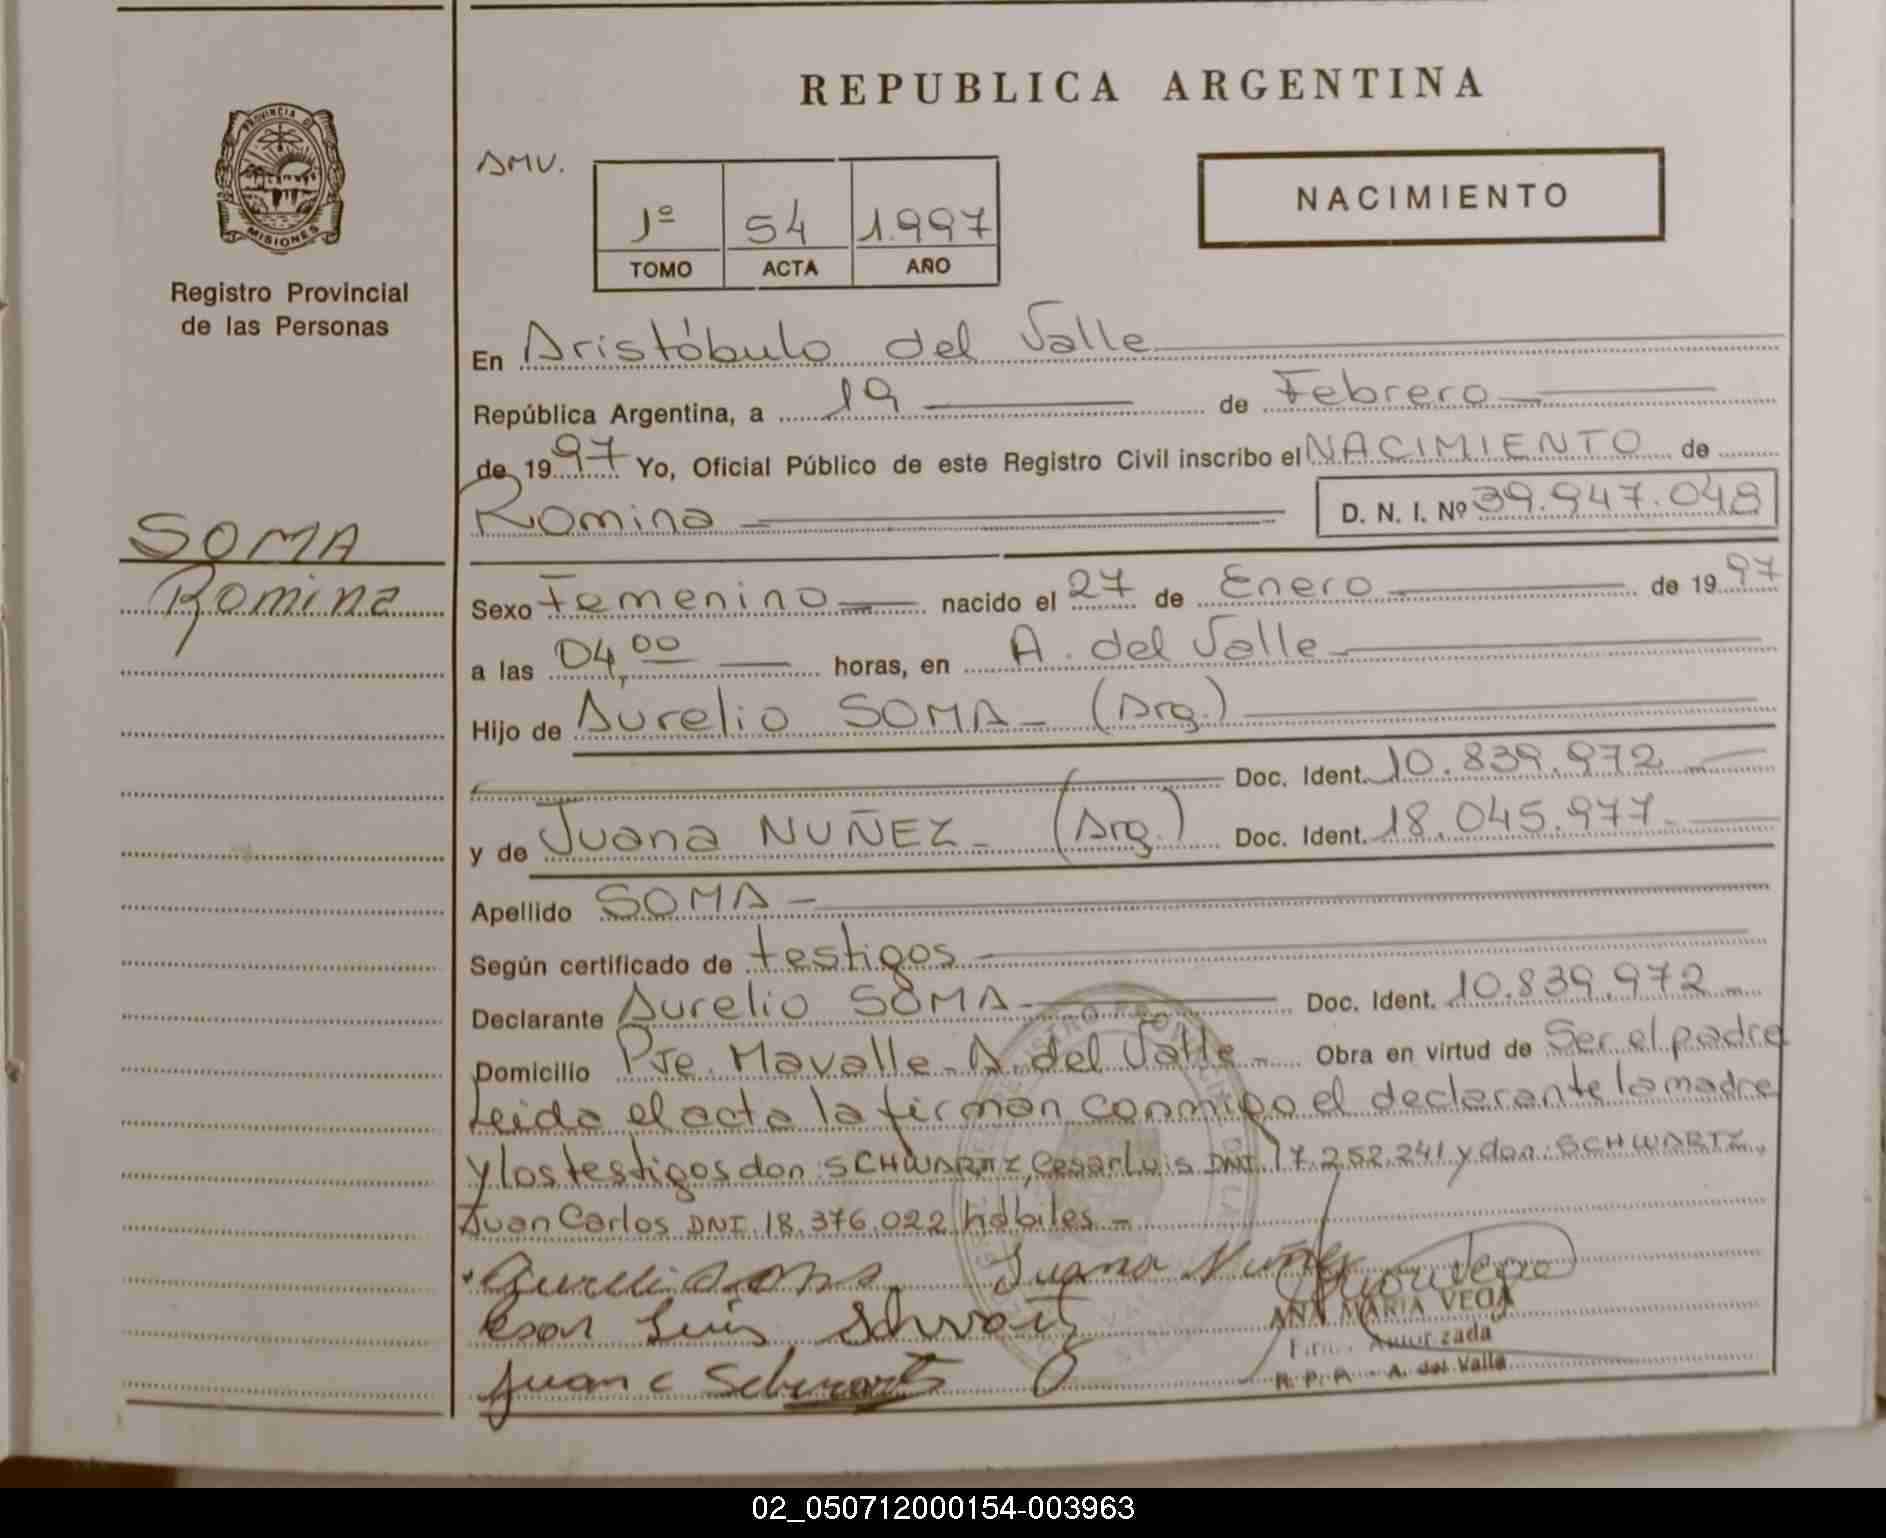 REPUBLICA ARGENTINA
PROVINCIA DE
MISIONES
Registro Provincial
de las Personas
AMV.
1º 54 1.997
TOMO ACTA AÑO
NACIMIENTO
En Aristóbulo del Valle
República Argentina, a 19 de Febrero
de 1997 Yo, Oficial Público de este Registro Civil inscribo el NACIMIENTO de
Romina D. N. I. Nº 39.947.048
SOMA
Romina
Sexo Femenino nacido el 27 de Enero de 1997
a las 04,00 horas, en A. del Valle
Hijo de Aurelio SOMA - (Arg.)
Doc. Ident. 10.839.972
y de Juana NUÑEZ - (Arg.) Doc. Ident. 18.045.977.
Apellido SOMA -
Según certificado de testigos
Declarante Aurelio SOMA - Doc. Ident. 10.839.972 -
Domicilio Pje. Mavalle - A. del Valle - Obra en virtud de Ser el padre
Leida el acta la firman conmigo el declarante la madre
y los testigos don: SCHWARTZ, Cesar Luis DNI. 17.252.241 y don: SCHWARTZ,
Juan Carlos DNI. 18.376.022 hábiles -
Juana Nuñez
Cesar Luis Schwartz
Juan C Schwartz
ANA MARIA VEGA
Autorizada
R. P. P. - A. del Valle
02_050712000154-003963